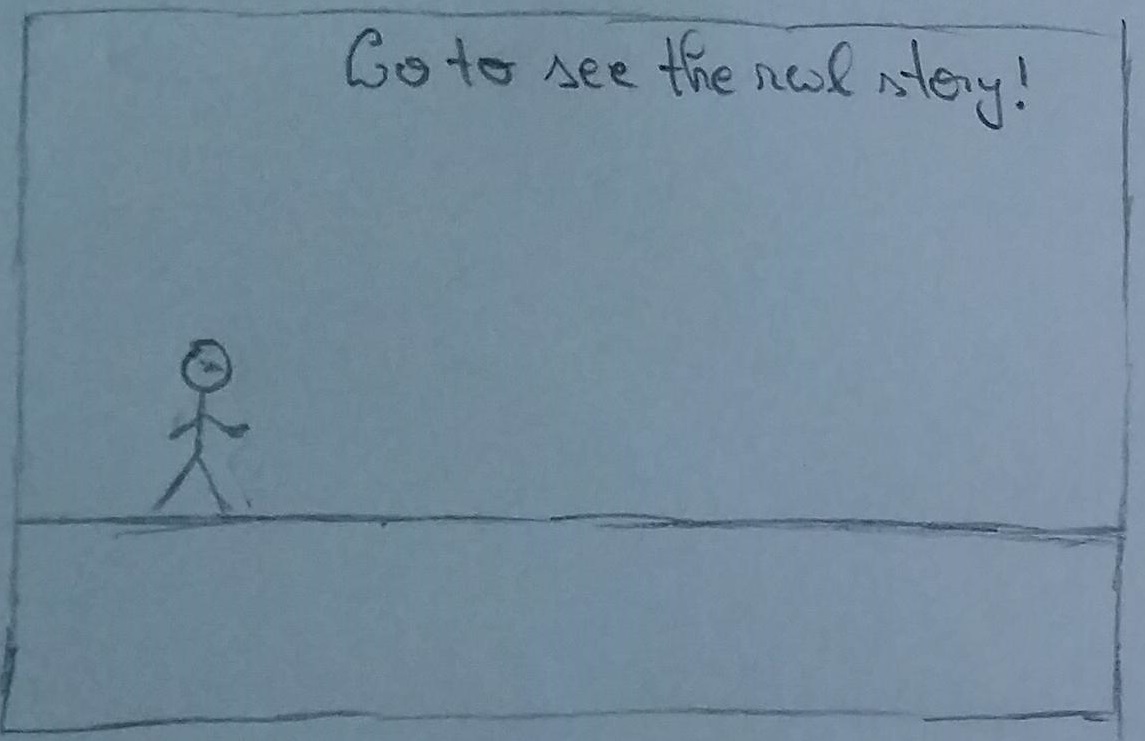 Go to see the real story!